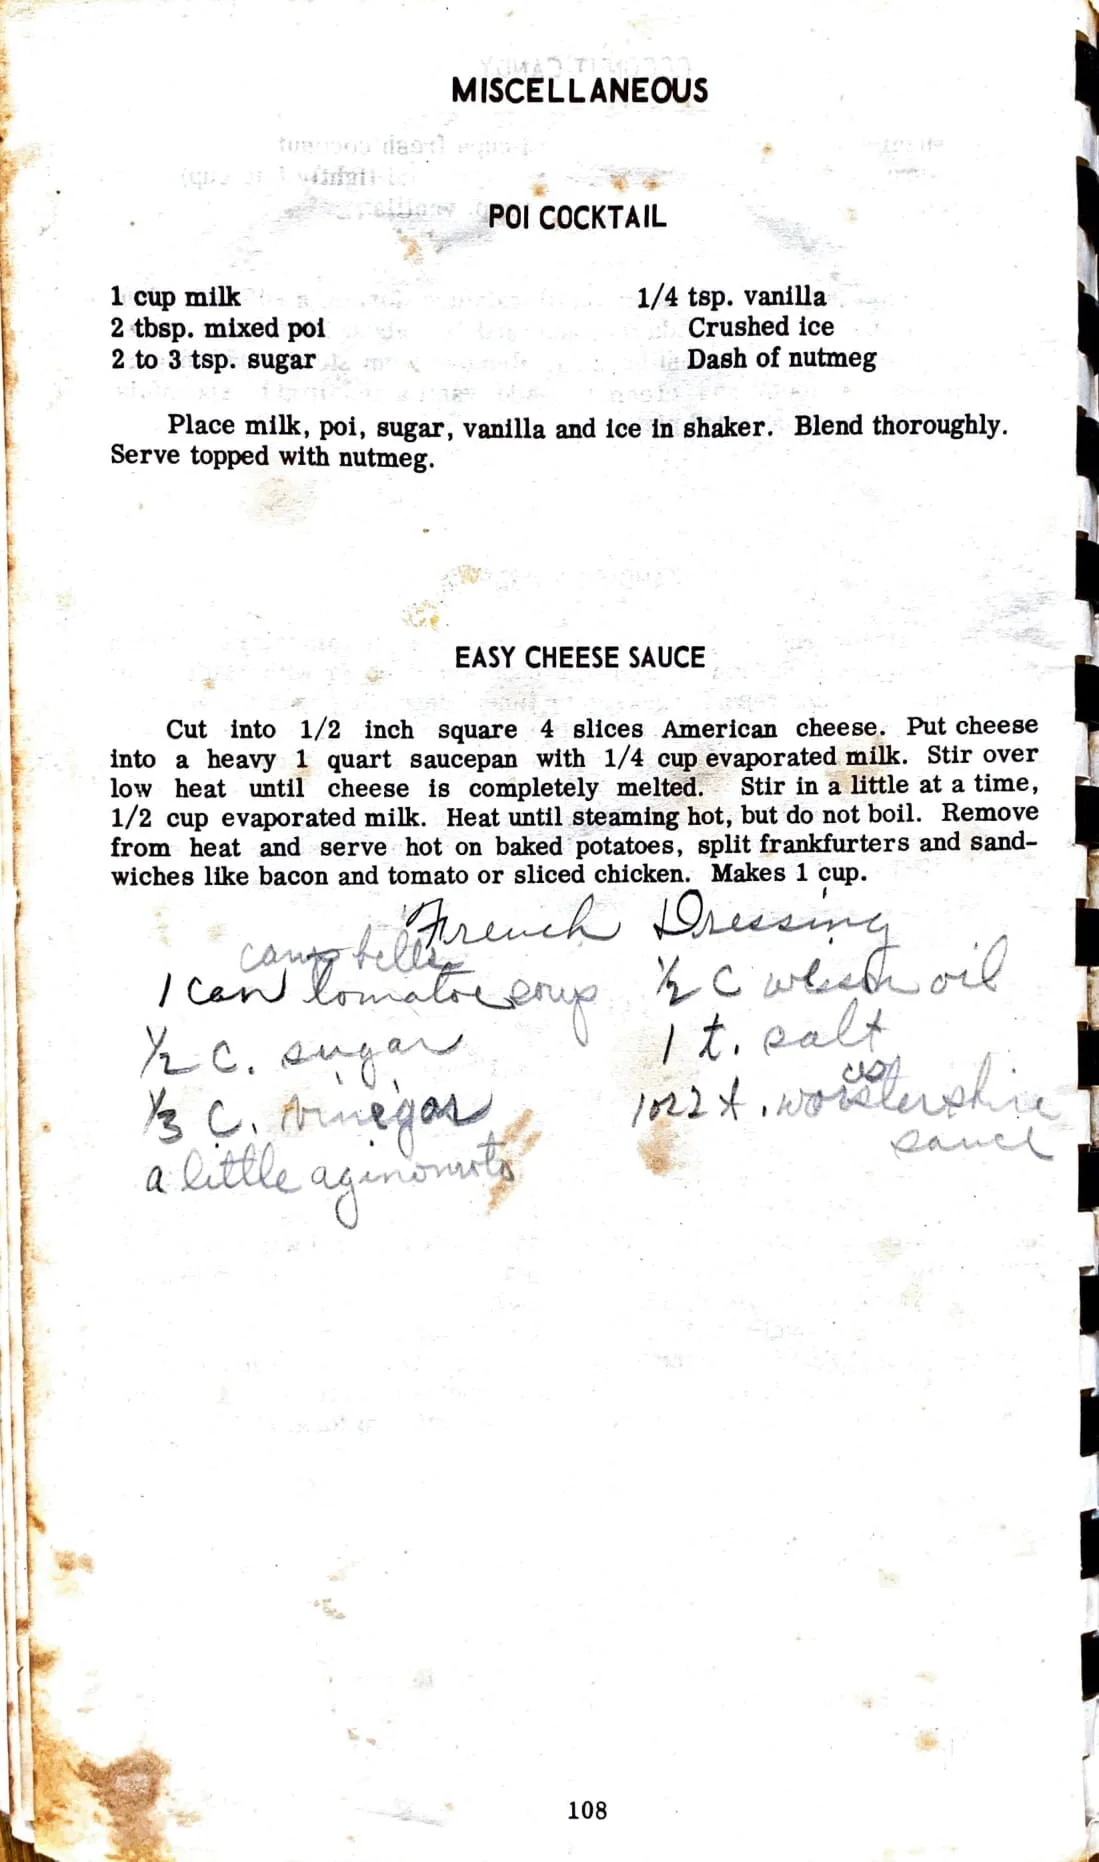 MISCELLANEOUS
POI COCKTAIL
1 cup milk
2 tbsp. mixed poi
2 to 3 tsp. sugar
1/4 tsp. vanilla
Crushed ice
Dash of nutmeg
Place milk, poi, sugar, vanilla and ice in shaker. Blend thoroughly.
Serve topped with nutmeg.
EASY CHEESE SAUCE
Cut into 1/2 inch square 4 slices American cheese. Put cheese
into a heavy 1 quart saucepan with 1/4 cup evaporated milk. Stir over
low heat until cheese is completely melted. Stir in a little at a time,
1/2 cup evaporated milk. Heat until steaming hot, but do not boil. Remove
from heat and serve hot on baked potatoes, split frankfurters and sand-
wiches like bacon and tomato or sliced chicken. Makes 1 cup.
French Dressing
campbells
1 can tomatoe soup
1/2 C. sugar
1/3 C. vinegar
a little aginomoto
1/2 C oil
1 t. salt
1 or 2 t.
sauce
108